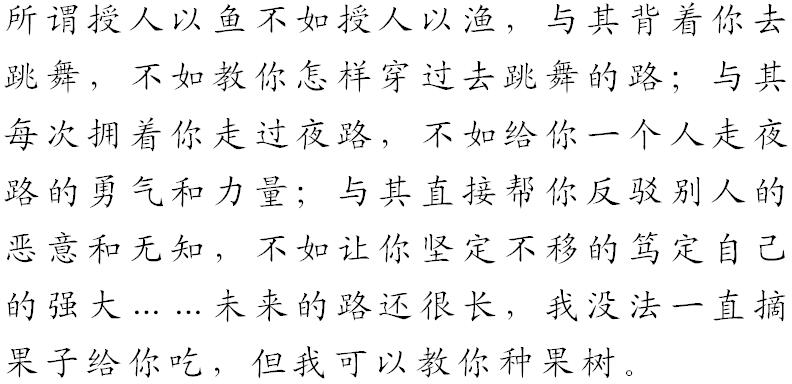 所谓授人以鱼不如授人以渔，与其背着你去
跳舞，不如教你怎样穿过去跳舞的路；与其
每次拥着你走过夜路，不如给你一个人走夜
路的勇气和力量；与其直接帮你反驳别人的
恶意和无知，不如让你坚定不移的笃定自己
的强大……未来的路还很长，我没法一直摘
果子给你吃，但我可以教你种果树。